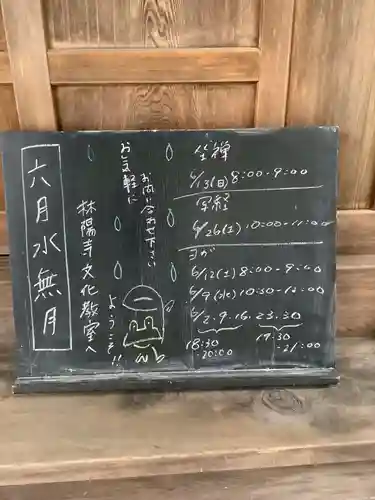 六月水無月
林陽寺文化教室へ
ようこそ!!
お気軽に
お問い合わせ下さい
坐禅
6/13(日) 8:00-9:00
写経
6/26(土) 10:00-11:00
ヨガ
6/12(土) 8:00-9:00
6/9(水) 10:30-12:00
6/2.9.16.23.30
18:30-20:00
19:30-21:00